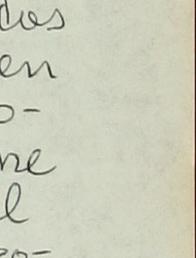 dos
en
o-
ne
l
ro-